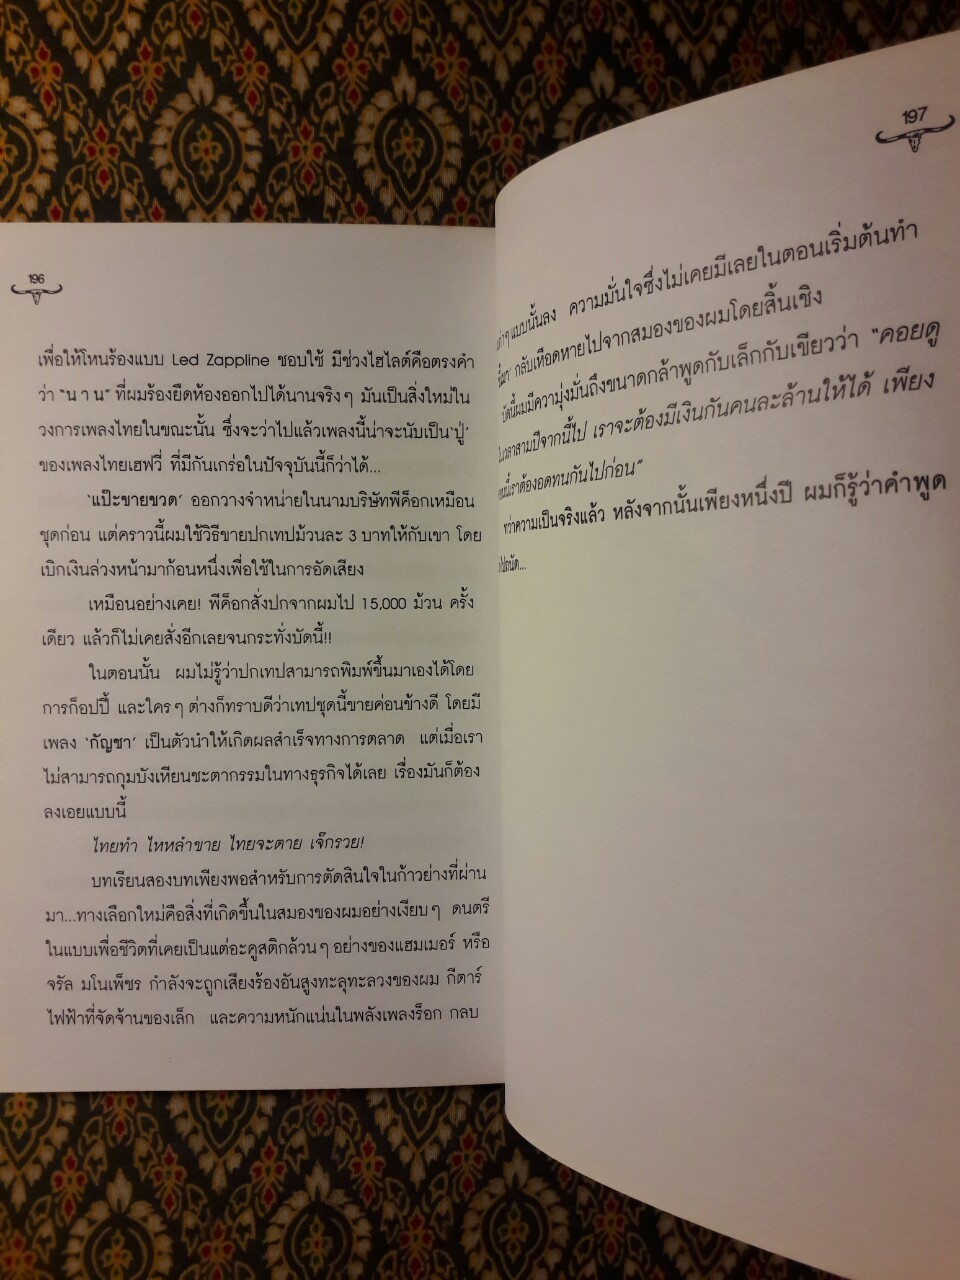 196
เพื่อให้โหนร้องแบบ Led Zappline ชอบใช้ มีช่วงไฮไลต์คือตรงคำ
ว่า "น า น" ที่ผมร้องยืดห้องออกไปได้นานจริงๆ มันเป็นสิ่งใหม่ใน
วงการเพลงไทยในขณะนั้น ซึ่งจะว่าไปแล้วเพลงนี้น่าจะนับเป็น'ปู่'
ของเพลงไทยเฮฟวี่ ที่มีกันเกร่อในปัจจุบันนี้ก็ว่าได้...
'แป๊ะขายขวด' ออกวางจำหน่ายในนามบริษัทพีค็อกเหมือน
ชุดก่อน แต่คราวนี้ผมใช้วิธีขายปกเทปม้วนละ 3 บาทให้กับเขา โดย
เบิกเงินล่วงหน้ามาก้อนหนึ่งเพื่อใช้ในการอัดเสียง
เหมือนอย่างเคย! พีค็อกสั่งปกจากผมไป 15,000 ม้วน ครั้ง
เดียว แล้วก็ไม่เคยสั่งอีกเลยจนกระทั่งบัดนี้!!
ในตอนนั้น ผมไม่รู้ว่าปกเทปสามารถพิมพ์ขึ้นมาเองได้โดย
การก็อปปี้ และใครๆ ต่างก็ทราบดีว่าเทปชุดนี้ขายค่อนข้างดี โดยมี
เพลง 'กัญชา' เป็นตัวนำให้เกิดผลสำเร็จทางการตลาด แต่เมื่อเรา
ไม่สามารถกุมบังเหียนชะตากรรมในทางธุรกิจได้เลย เรื่องมันก็ต้อง
ลงเอยแบบนี้
ไทยทำ ไหหลำขาย ไทยจะตาย เจ๊กรวย!
บทเรียนสองบทเพียงพอสำหรับการตัดสินใจในก้าวย่างที่ผ่าน
มา...ทางเลือกใหม่คือสิ่งที่เกิดขึ้นในสมองของผมอย่างเงียบๆ ดนตรี
ในแบบเพื่อชีวิตที่เคยเป็นแต่อะคูสติกล้วนๆ อย่างของแฮมเมอร์ หรือ
จรัล มโนเพ็ชร กำลังจะถูกเสียงร้องอันสูงทะลุทะลวงของผม กีตาร์
ไฟฟ้าที่จัดจ้านของเล็ก และความหนักแน่นในพลังเพลงร็อก กลบ
197
แบบนั้นลง ความมั่นใจซึ่งไม่เคยมีเลยในตอนเริ่มต้นทำ
กลับเหือดหายไปจากสมองของผมโดยสิ้นเชิง
บัดนี้ผมมีความุ่งมั่นถึงขนาดกล้าพูดกับเล็กกับเขียวว่า "คอยดู
ในเวลาสามปีจากนี้ไป เราจะต้องมีเงินกันคนละล้านให้ได้ เพียง
เราต้องอดทนกันไปก่อน"
ทว่าความเป็นจริงแล้ว หลังจากนั้นเพียงหนึ่งปี ผมก็รู้ว่าคำพูด